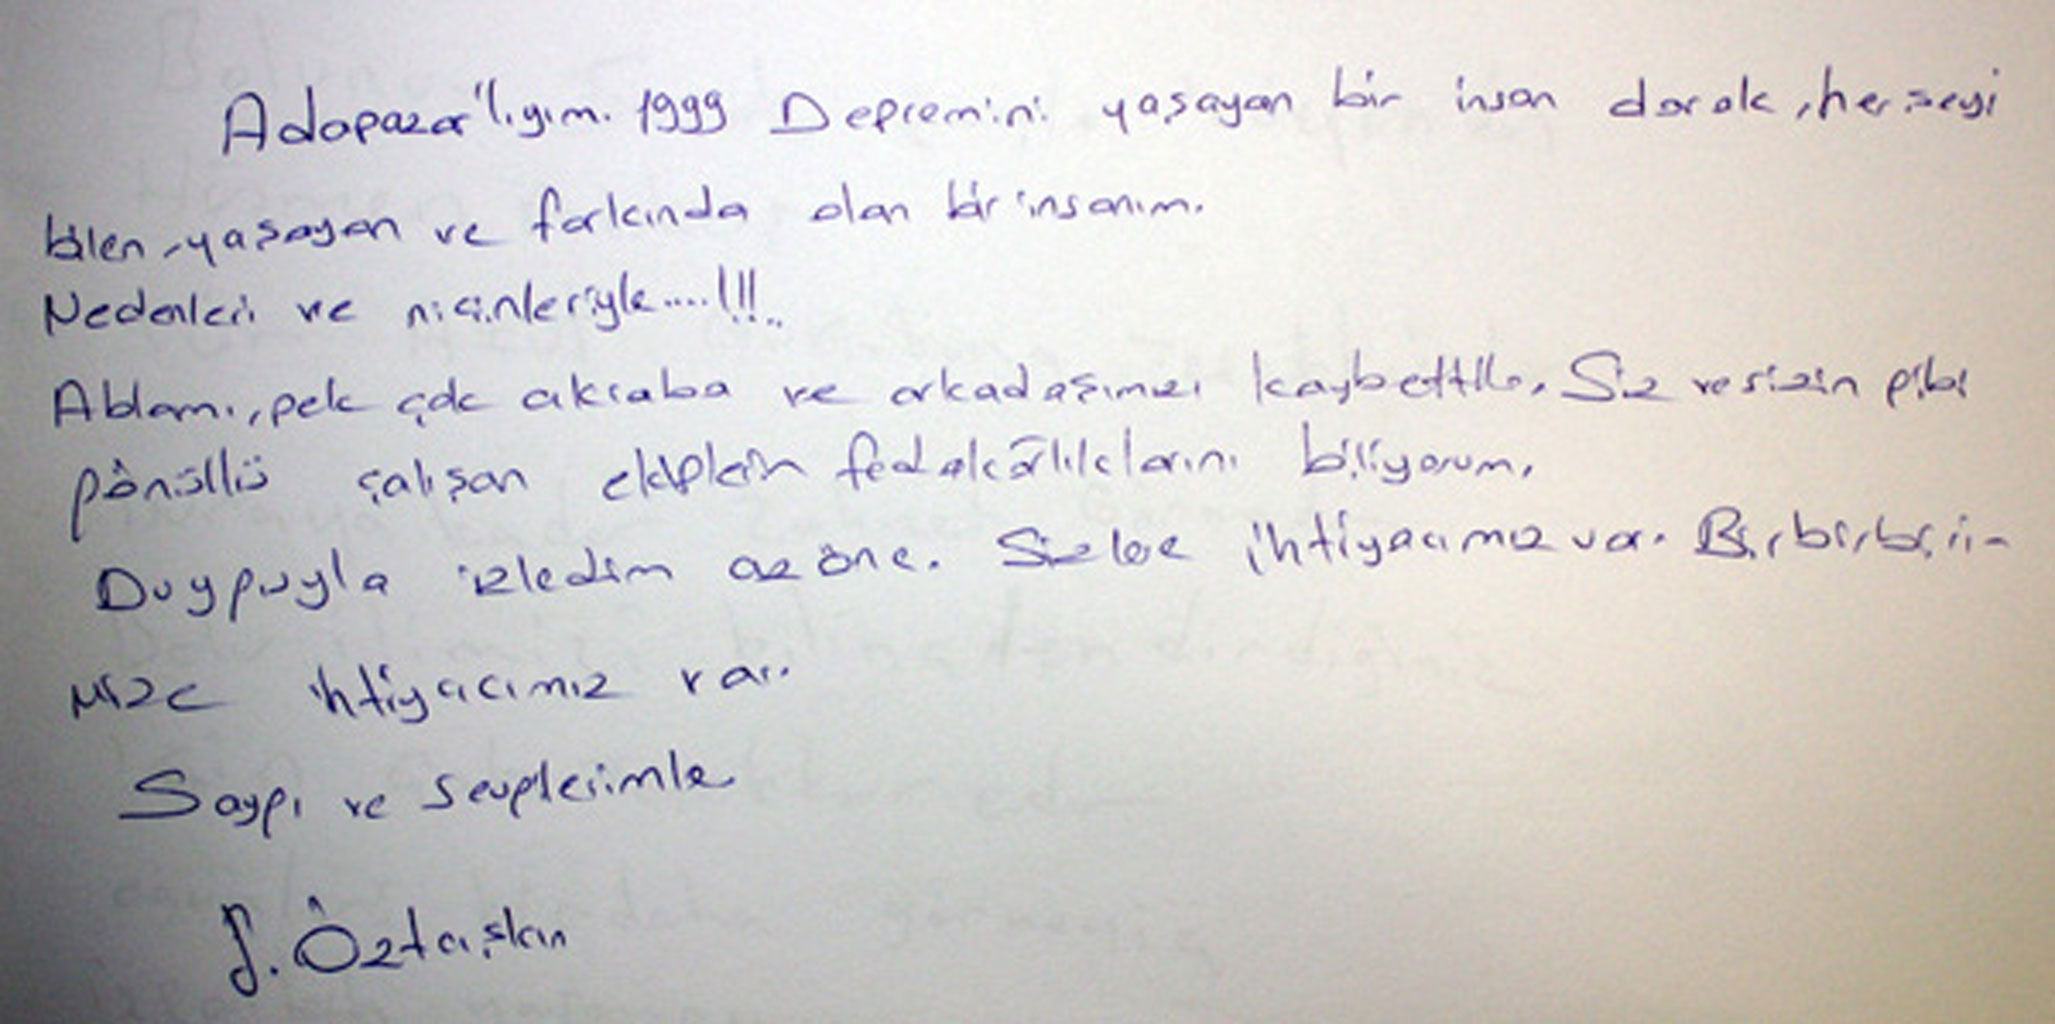 Adapazar'lıyım. 1999 Depremini yaşayan bir insan olarak, herşeyi
bilen, yaşayan ve farkında olan bir insanım.
Nedenleri ve niçinleriyle....!!!..
Ablamı, pek çok akraba ve arkadaşımızı kaybettik. Siz ve sizin gibi
gönüllü çalışan ekiplerin fedakârlıklarını biliyorum.
Duyguyla izledim az önce. Sizlere ihtiyacımız var. Birbiri-
mize ihtiyacımız var.
Saygı ve sevgilerimle
Öztaşkın